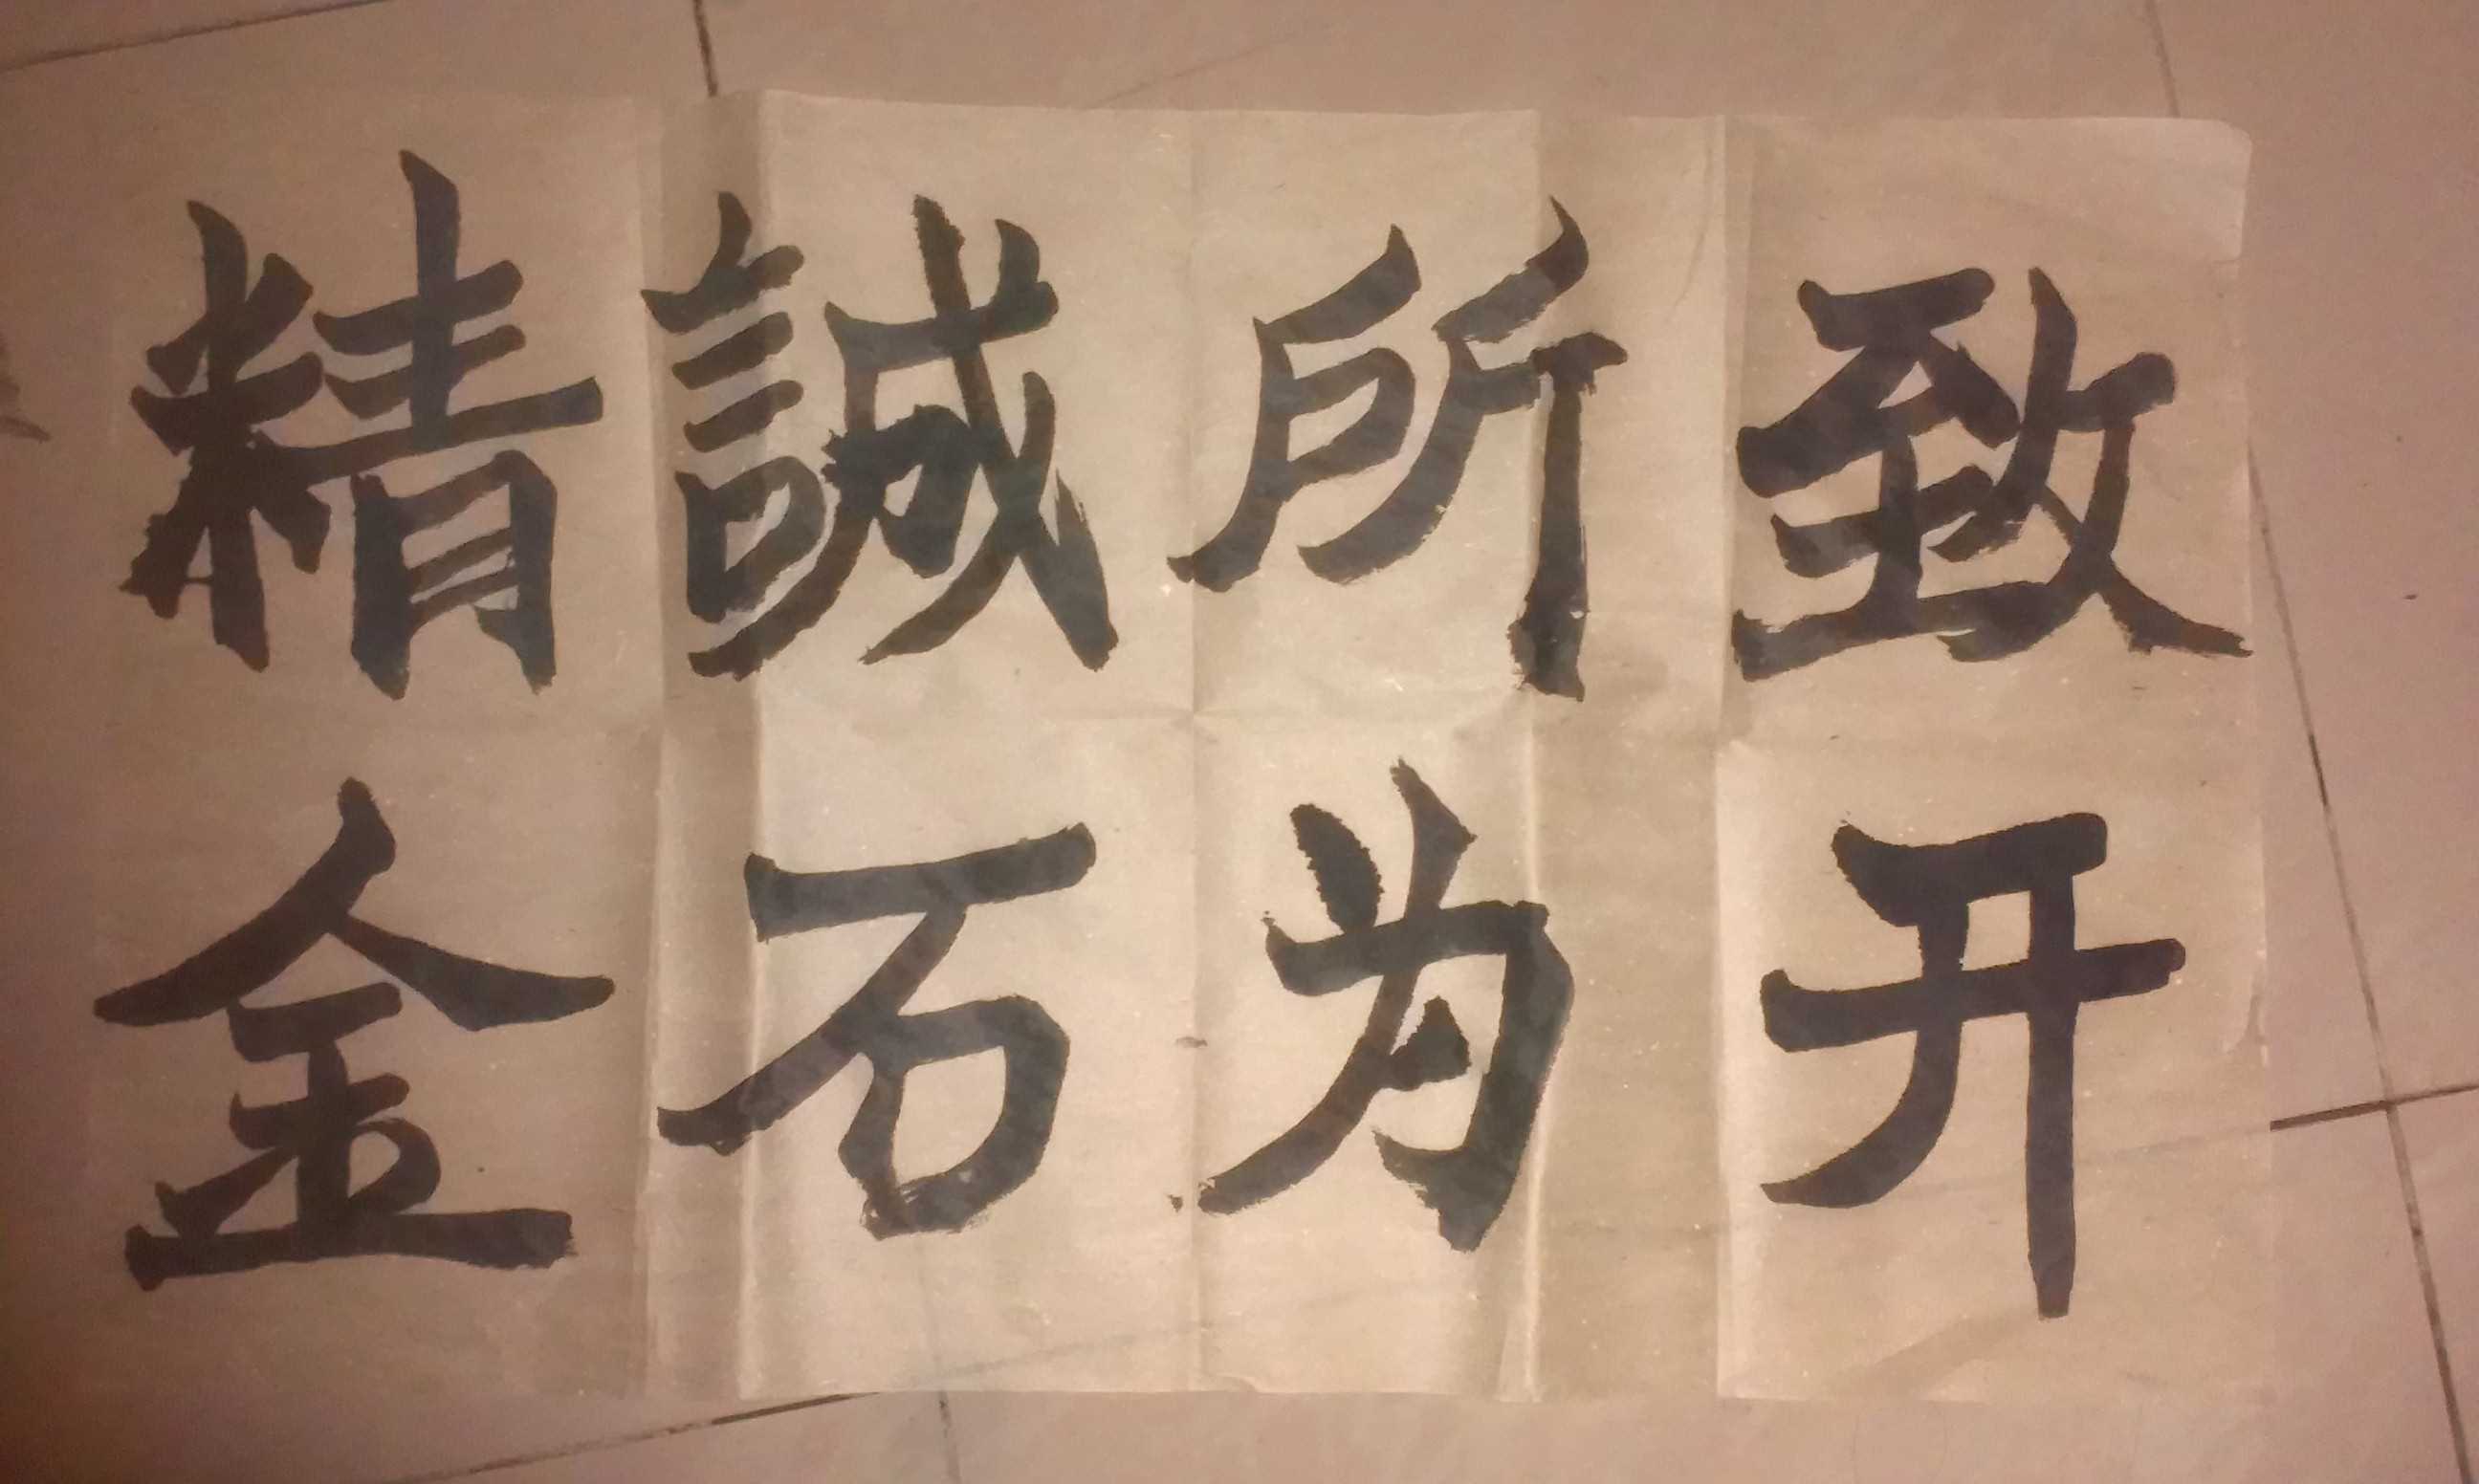 精誠所致
金石为开